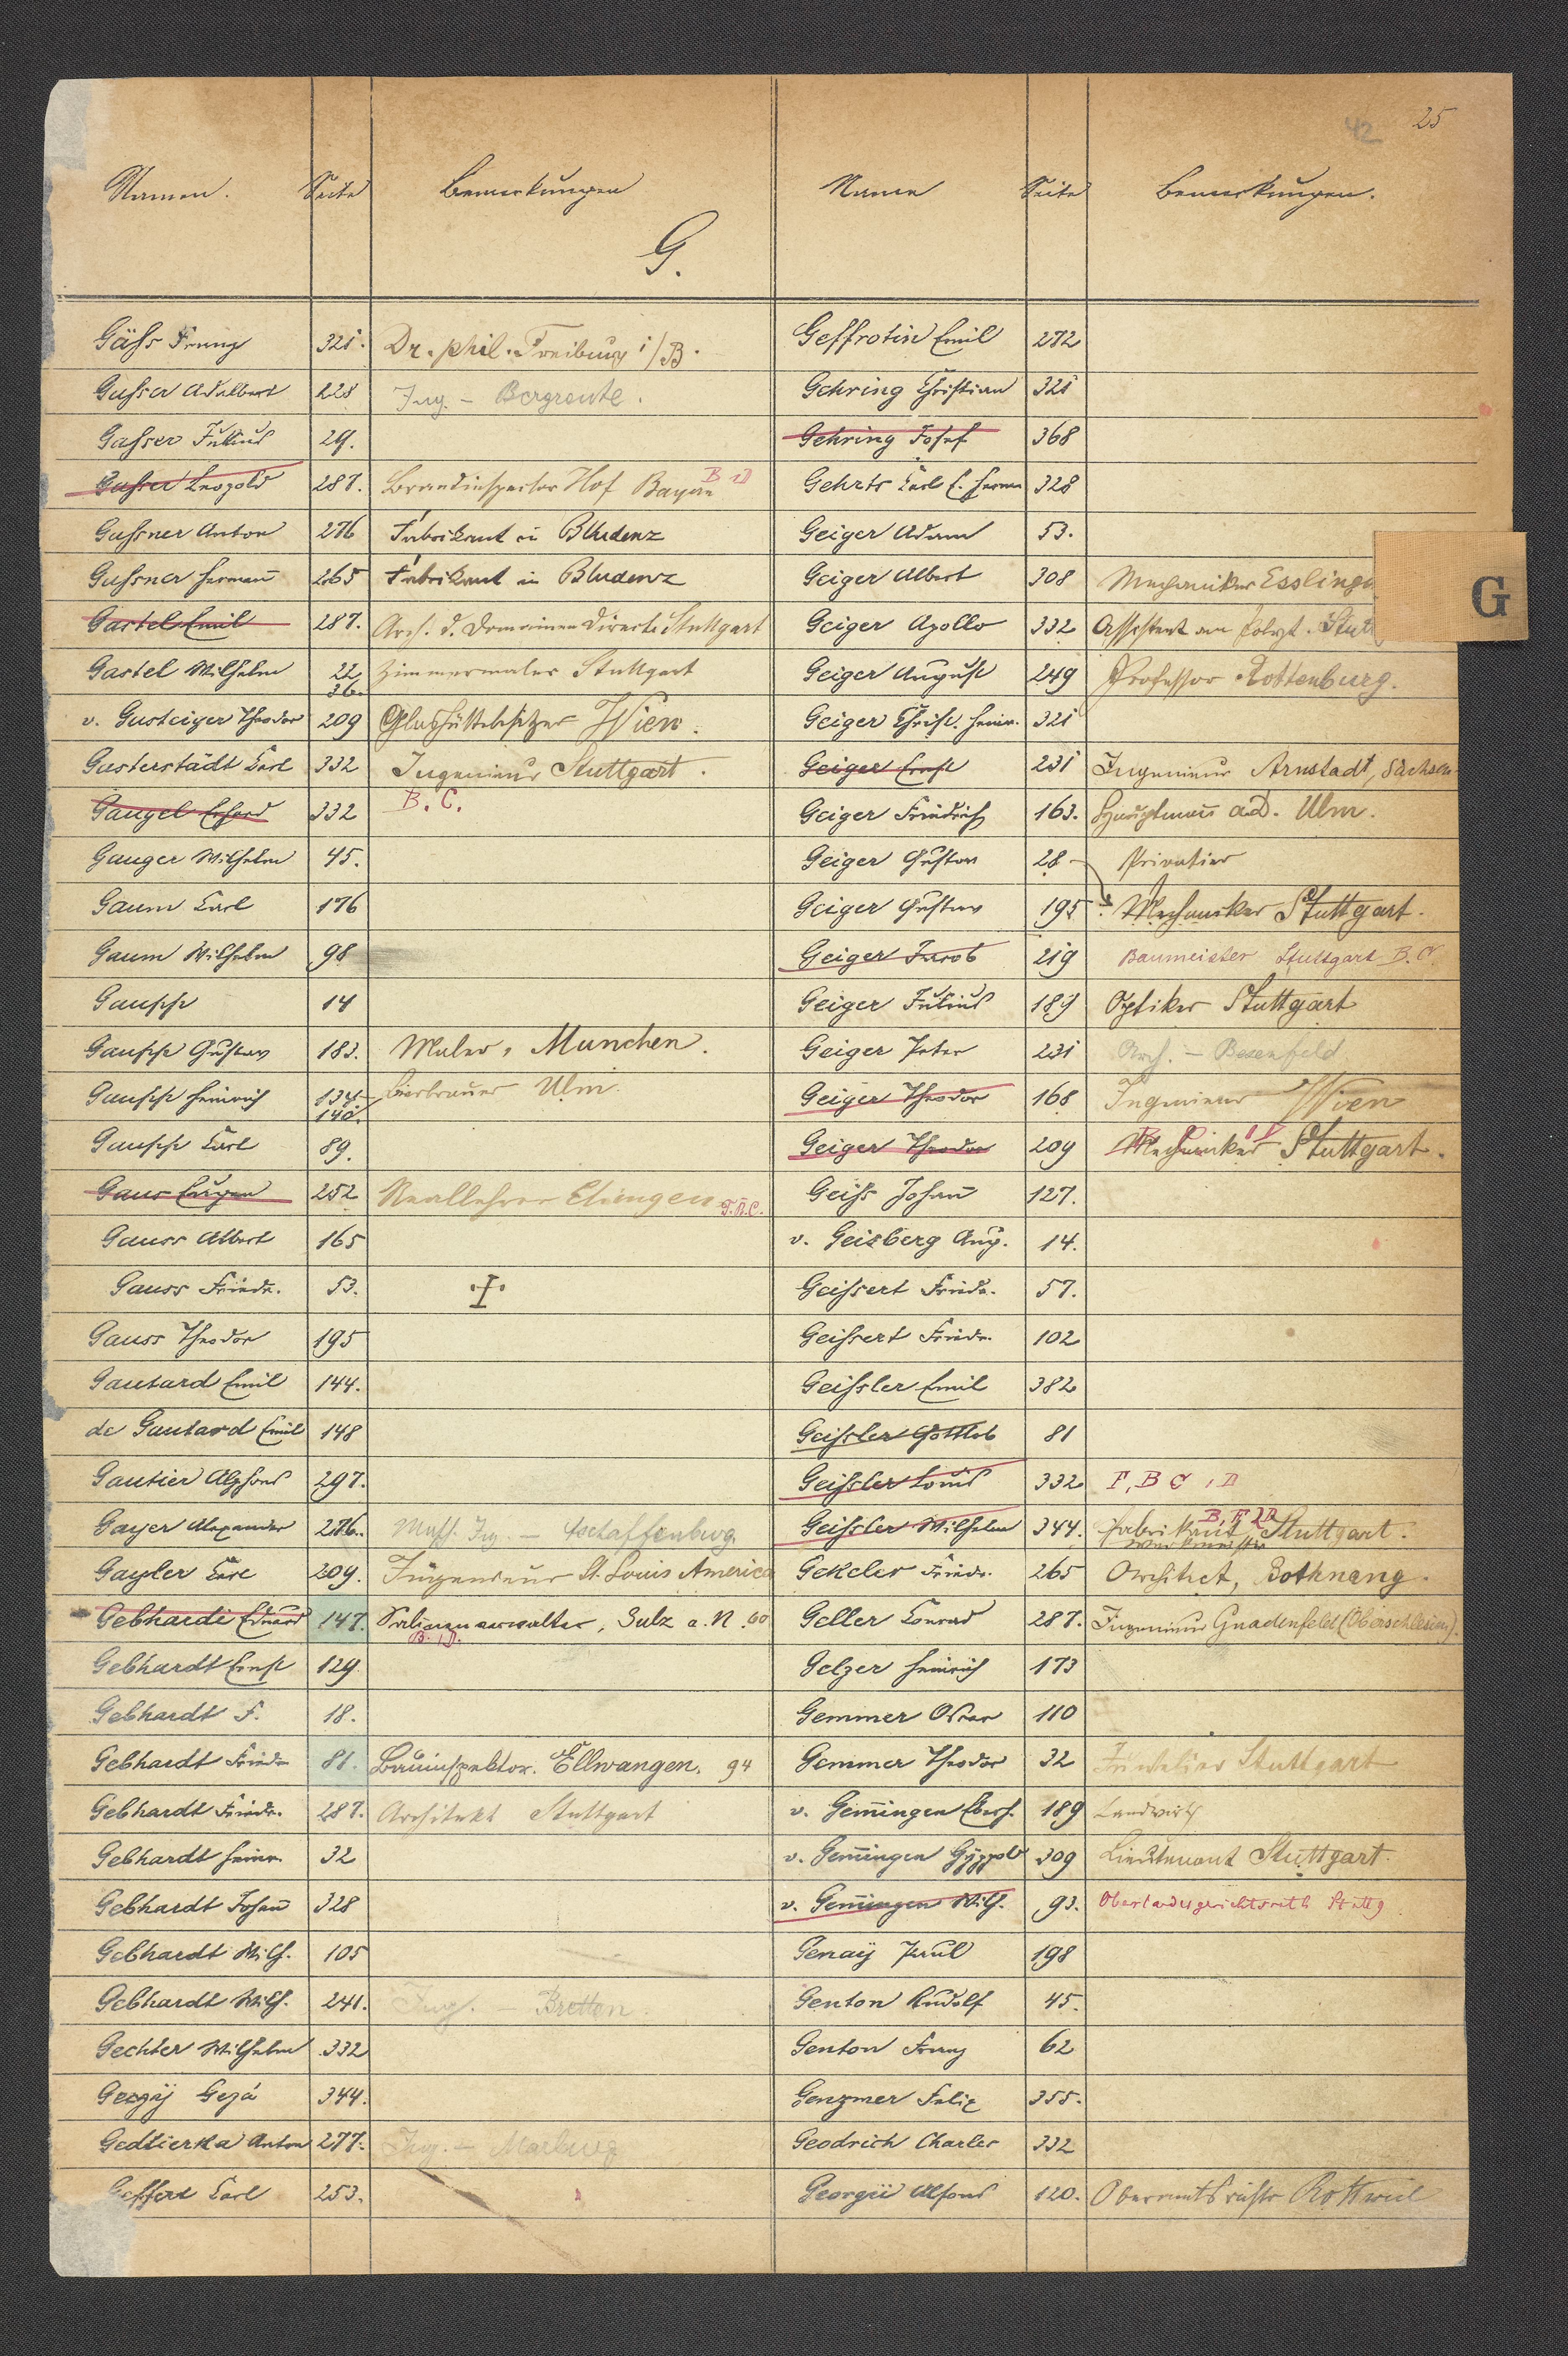 42 25
Namen. Seite Bemerkungen Name Seite Bemerkungen.
G.
Gäss Franz 321. Dr. phil. Freiburg i/B.
Gasser Adalbert 228 Ing. –
Gasser Julius 29.
Gasser Leopold 287. Brandinspector Hof Bayern B D
Gassner Anton 276 Fabrikant in Bludenz
Gassner Hermann 265 Fabrikant in Bludenz
Gastel Emil 287. Arch. d. Domainen Directi Stuttgart
Gastel Wilhelm 22 36. Zimmermaler Stuttgart
v. Gasteiger Theodor 209 Glashüttebesitzer Wien.
Gasterstädt Carl 332 Ingenieur Stuttgart.
Gaugel Erhard 332 B. C.
Gauger Wilhelm 45.
Gaum Carl 176
Gaum Wilhelm 98
Gaupp 14
Gaupp Gustav 183. Maler, Munchen.
Gaupp Heinrich 134 140. Bierbrauer Ulm.
Gaupp Carl 89.
Gaus Eugen 252 Reallehrer
Gauss Albert 165
Gauss Friedr. 53.
Gauss Theodor 195
Gautard Emil 144.
de Gautard Emil 148
Gautier Alphons 297.
Gayer Alexander 276. Masch. Ing – Aschaffenburg.
Gayler Carl 209. Ingenieur St. Louis America
Gebhardt Eduard 147. Salinenverwalter, Sulz a. N. B. D.
Gebhardt Ernst 129.
Gebhardt F. 18.
Gebhardt Friedr 81. Bauinspektor. Ellwangen. 94
Gebhardt Friedr. 287. Architekt Stuttgart
Gebhardt Heinr. 32
Gebhardt Johann 328
Gebhardt Wilh. 105
Gebhardt Wilh. 241. Ing. – Bretten.
Gechter Wilhelm 332
Gezá 344.
Gedlierka Anton 277. Ing. – Marburg
Geffert Carl 253.
Geffrotin Emil 272
Gehring Christian 321
Gehring Josef 368
Gehrts Carl 328
Geiger Adam 53.
Geiger Albert 308 Mechaniker Esslinge
Geiger Apollo 332 Assistent am Polyt. Stut
Geiger August 249 Professor Rottenburg.
Geiger Christ. Heinr. 321
Geiger Ernst 231 Ingenieur Arnstadt, Sachsen.
Geiger Friedrich 163. Hauptmann a.D. Ulm.
Geiger Gustav 28 Privatier
Geiger Gustav 195 Mechaniker Stuttgart.
Geiger Jacob 219 Baumeister Stuttgart B. C.
Geiger Julius 189 Optiker Stuttgart
Geiger Peter 231 Arch. – Besenfeld.
Geiger Theodor 168 Ingenieur Wien
Geiger Theodor 209 Mechaniker Stuttgart.
Geiss Johann 127.
v. Geizberg Aug. 14.
Geissert Friedr. 57.
Geissert Friedr. 102
Geissler Emil 382
Geissler Gottlob 81
Geissler Louis 332 F, B C, D
Geissler Wilhelm 344. Fabrikant Stuttgart. Werkmeister
Gekeler Friedr. 265 Architect, Bothnang.
Geller Conrad 287. Ingenieur Gnadenfeld (Oberschlesien).
Gelzer Heinrich 173
Gemmer Oscar 110
Gemmer Theodor 32 Juwelier Stuttgart
v. Gemmingen Eberh. 189 Landwirth
v. Gemmingen 309 Lieutenant Stuttgart.
v. Gemmingen Wilh. 93. Oberlandesgerichtsrath Stuttg
Genaÿ Paul 198
Genton Rudolf 45.
Genton Franz 62
Genzmer Felix 355.
Geodrich Charles 332
Georgii Alfons 120. Oberamtsrichter Rottweil
G